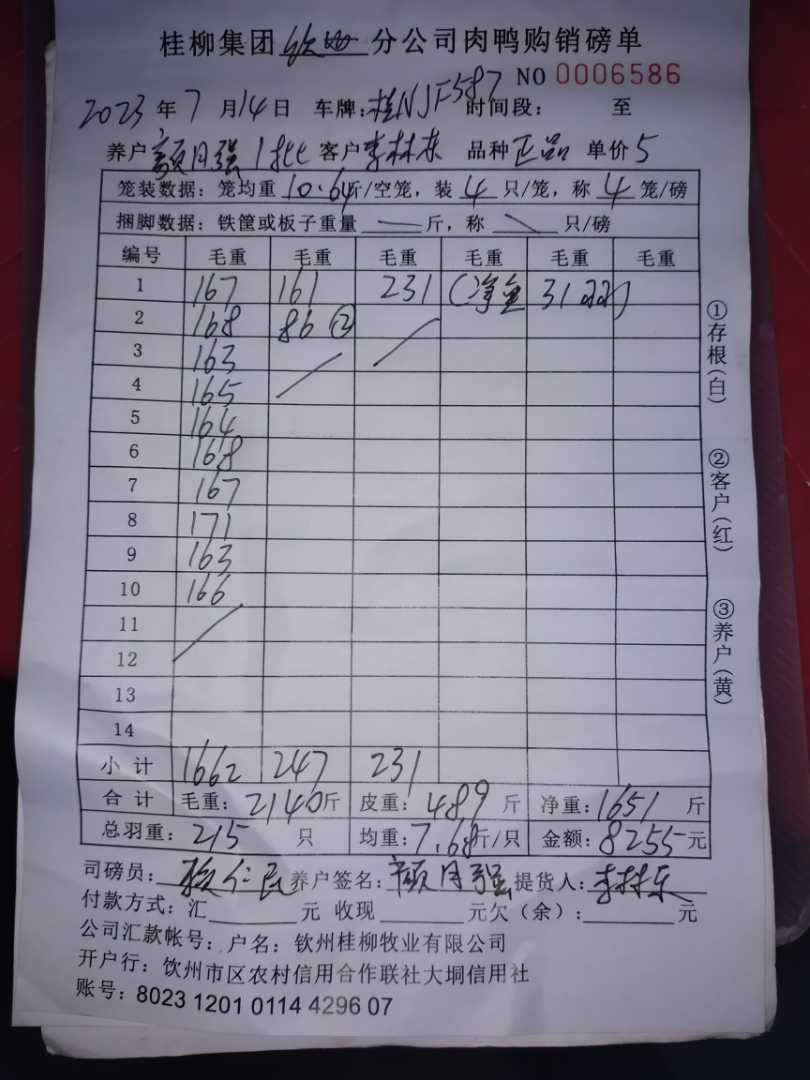 桂柳集团钦州分公司肉鸭购销磅单
NO 0006586
2023年7月14日 车牌:桂NJF587 时间段: 至
养户颜月强1批 客户李林东 品种正品 单价5
笼装数据:笼均重10.64斤/空笼,装4只/笼,称4笼/磅
捆脚数据:铁筐或板子重量——斤,称\只/磅
编号 毛重 毛重 毛重 毛重 毛重 毛重
1 167 161 231 (净重 31羽)
2 168 86②
3 163
4 165
5 164
6 168
7 167
8 171
9 163
10 166
11
12
13
14
小计 1662 247 231
合计 毛重:2140斤 皮重:489斤 净重:1651斤
总羽重:215只 均重:7.68斤/只 金额:8255元
司磅员: 仁民 养户签名:颜月强 提货人:李林东
付款方式:汇 元 收现 元欠(余): 元
公司汇款帐号:户名:钦州桂柳牧业有限公司
开户行:饮州市区农村信用合作联社大垌信用社
账号:8023 1201 0114 4296 07
①存根(白)
②客户(红)
③养户(黄)